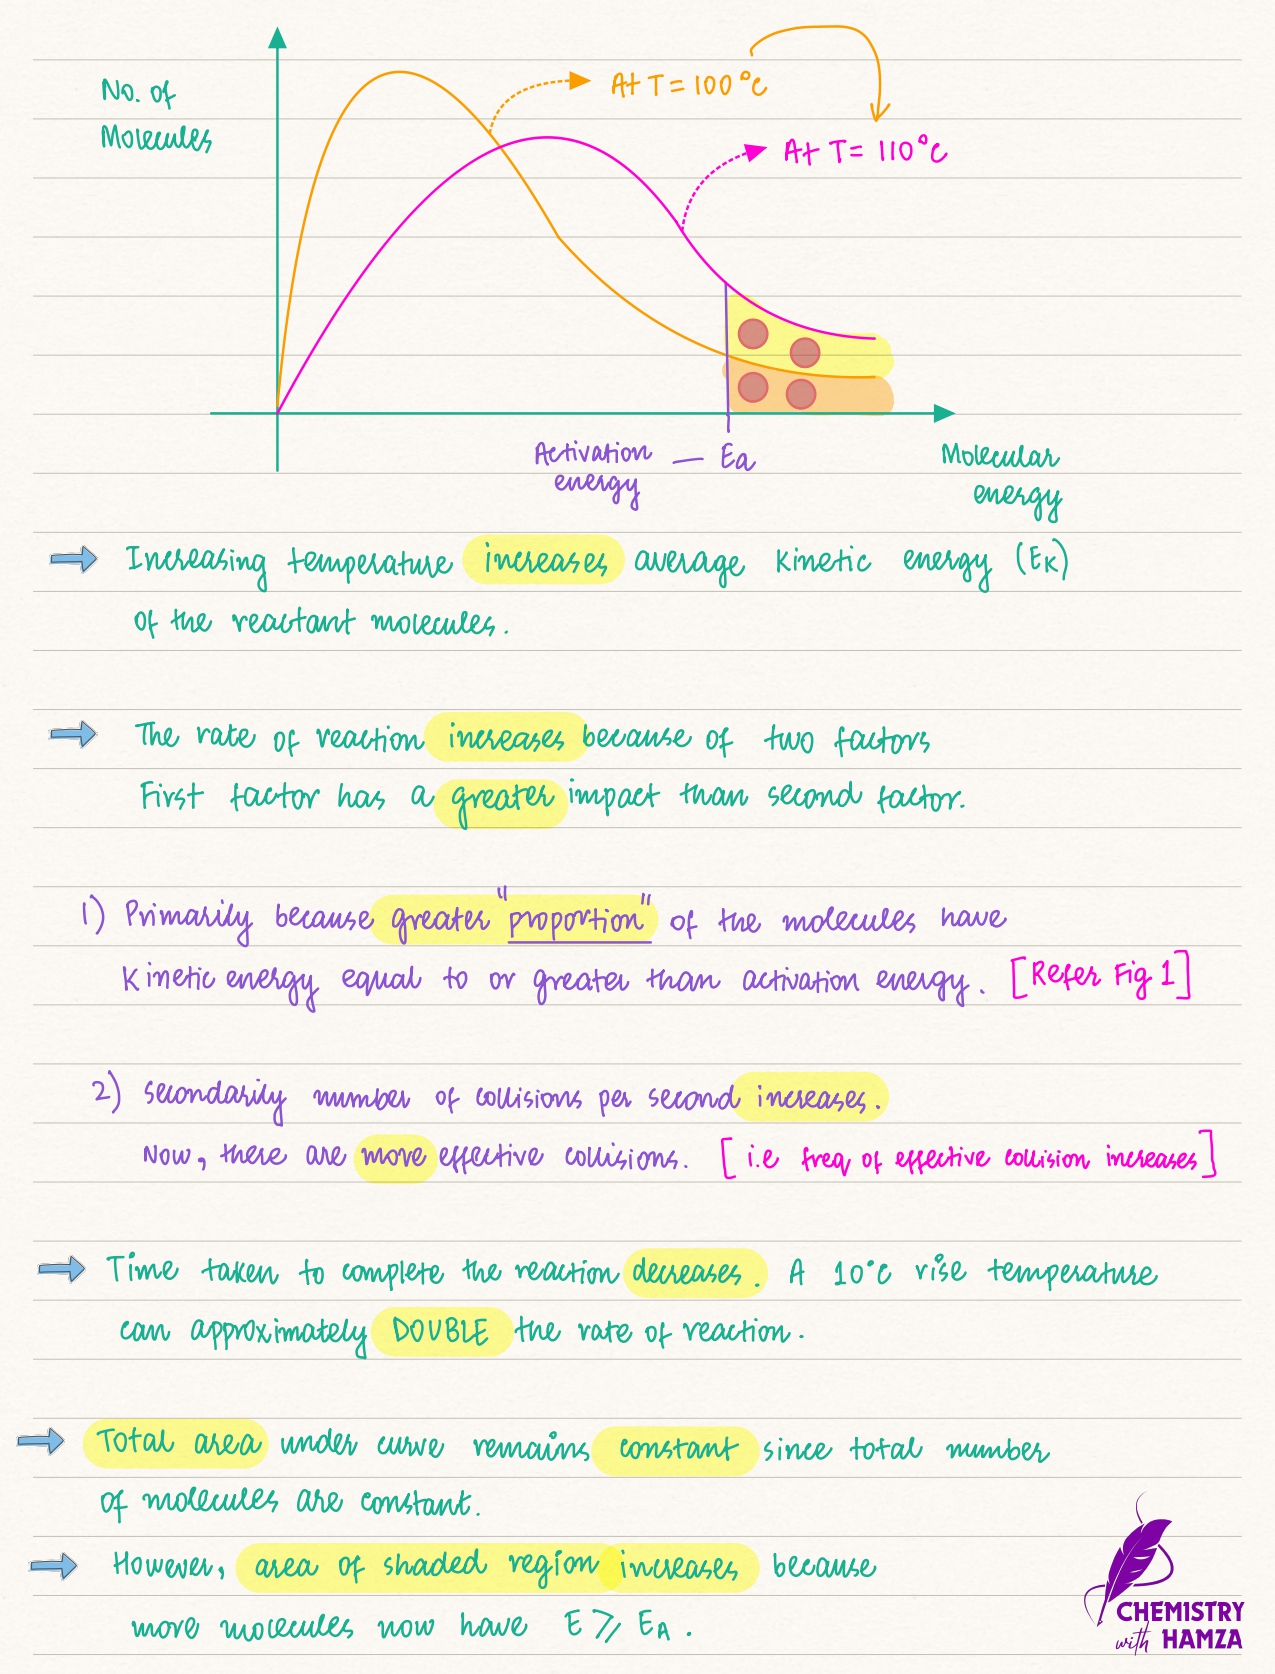 No. of
Molecules
At T = 100°C
At T = 110°C
Activation
energy
— Ea
Molecular
energy
Increasing temperature increases average kinetic energy (EK)
of the reactant molecules.
The rate of reaction increases because of two factors
First factor has a greater impact than second factor.
1) Primarily because greater "proportion" of the molecules have
kinetic energy equal to or greater than activation energy. [Refer Fig 1]
2) Secondarily number of collisions per second increases.
Now, there are more effective collisions. [i.e freq of effective collision increases]
Time taken to complete the reaction decreases. A 10°C rise temperature
can approximately DOUBLE the rate of reaction.
Total area under curve remains constant since total number
of molecules are constant.
However, area of shaded region increases because
more molecules now have E ⩾ EA.
CHEMISTRY
with HAMZA